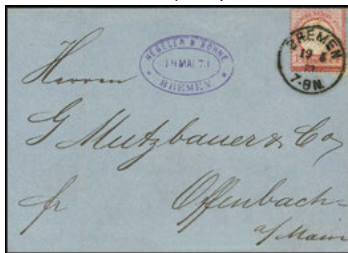 & SÖHNE
19 MAI 73
BREMEN
BREMEN
19 5
7-8N.
Herren
G Mutzbauer & Co
fr
Offenbach
a/Main